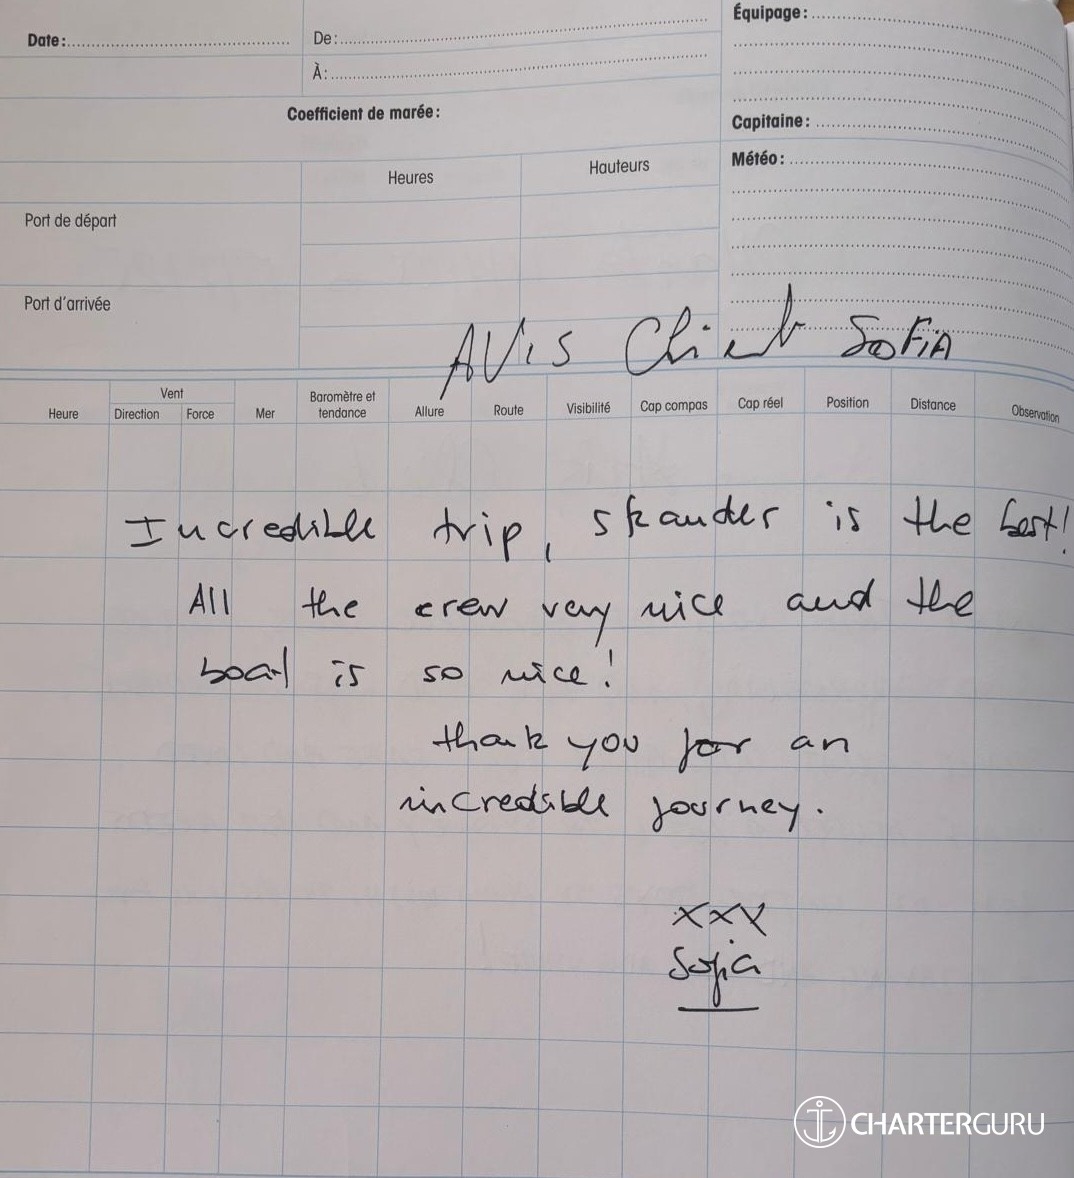 Date:
De:
À:
Équipage:
Coefficient de marée:
Capitaine:
Météo:
Heures
Hauteurs
Port de départ
Port d'arrivée
AVis Client SoFiA
Heure
Vent
Direction
Force
Mer
Baromètre et
tendance
Allure
Route
Visibilité
Cap compas
Cap réel
Position
Distance
Observation
Incredible trip, skander is the best!
All the crew very nice and the
boat is so nice!
thank you for an
incredible journey.
xxx
Sofia
CHARTERGURU